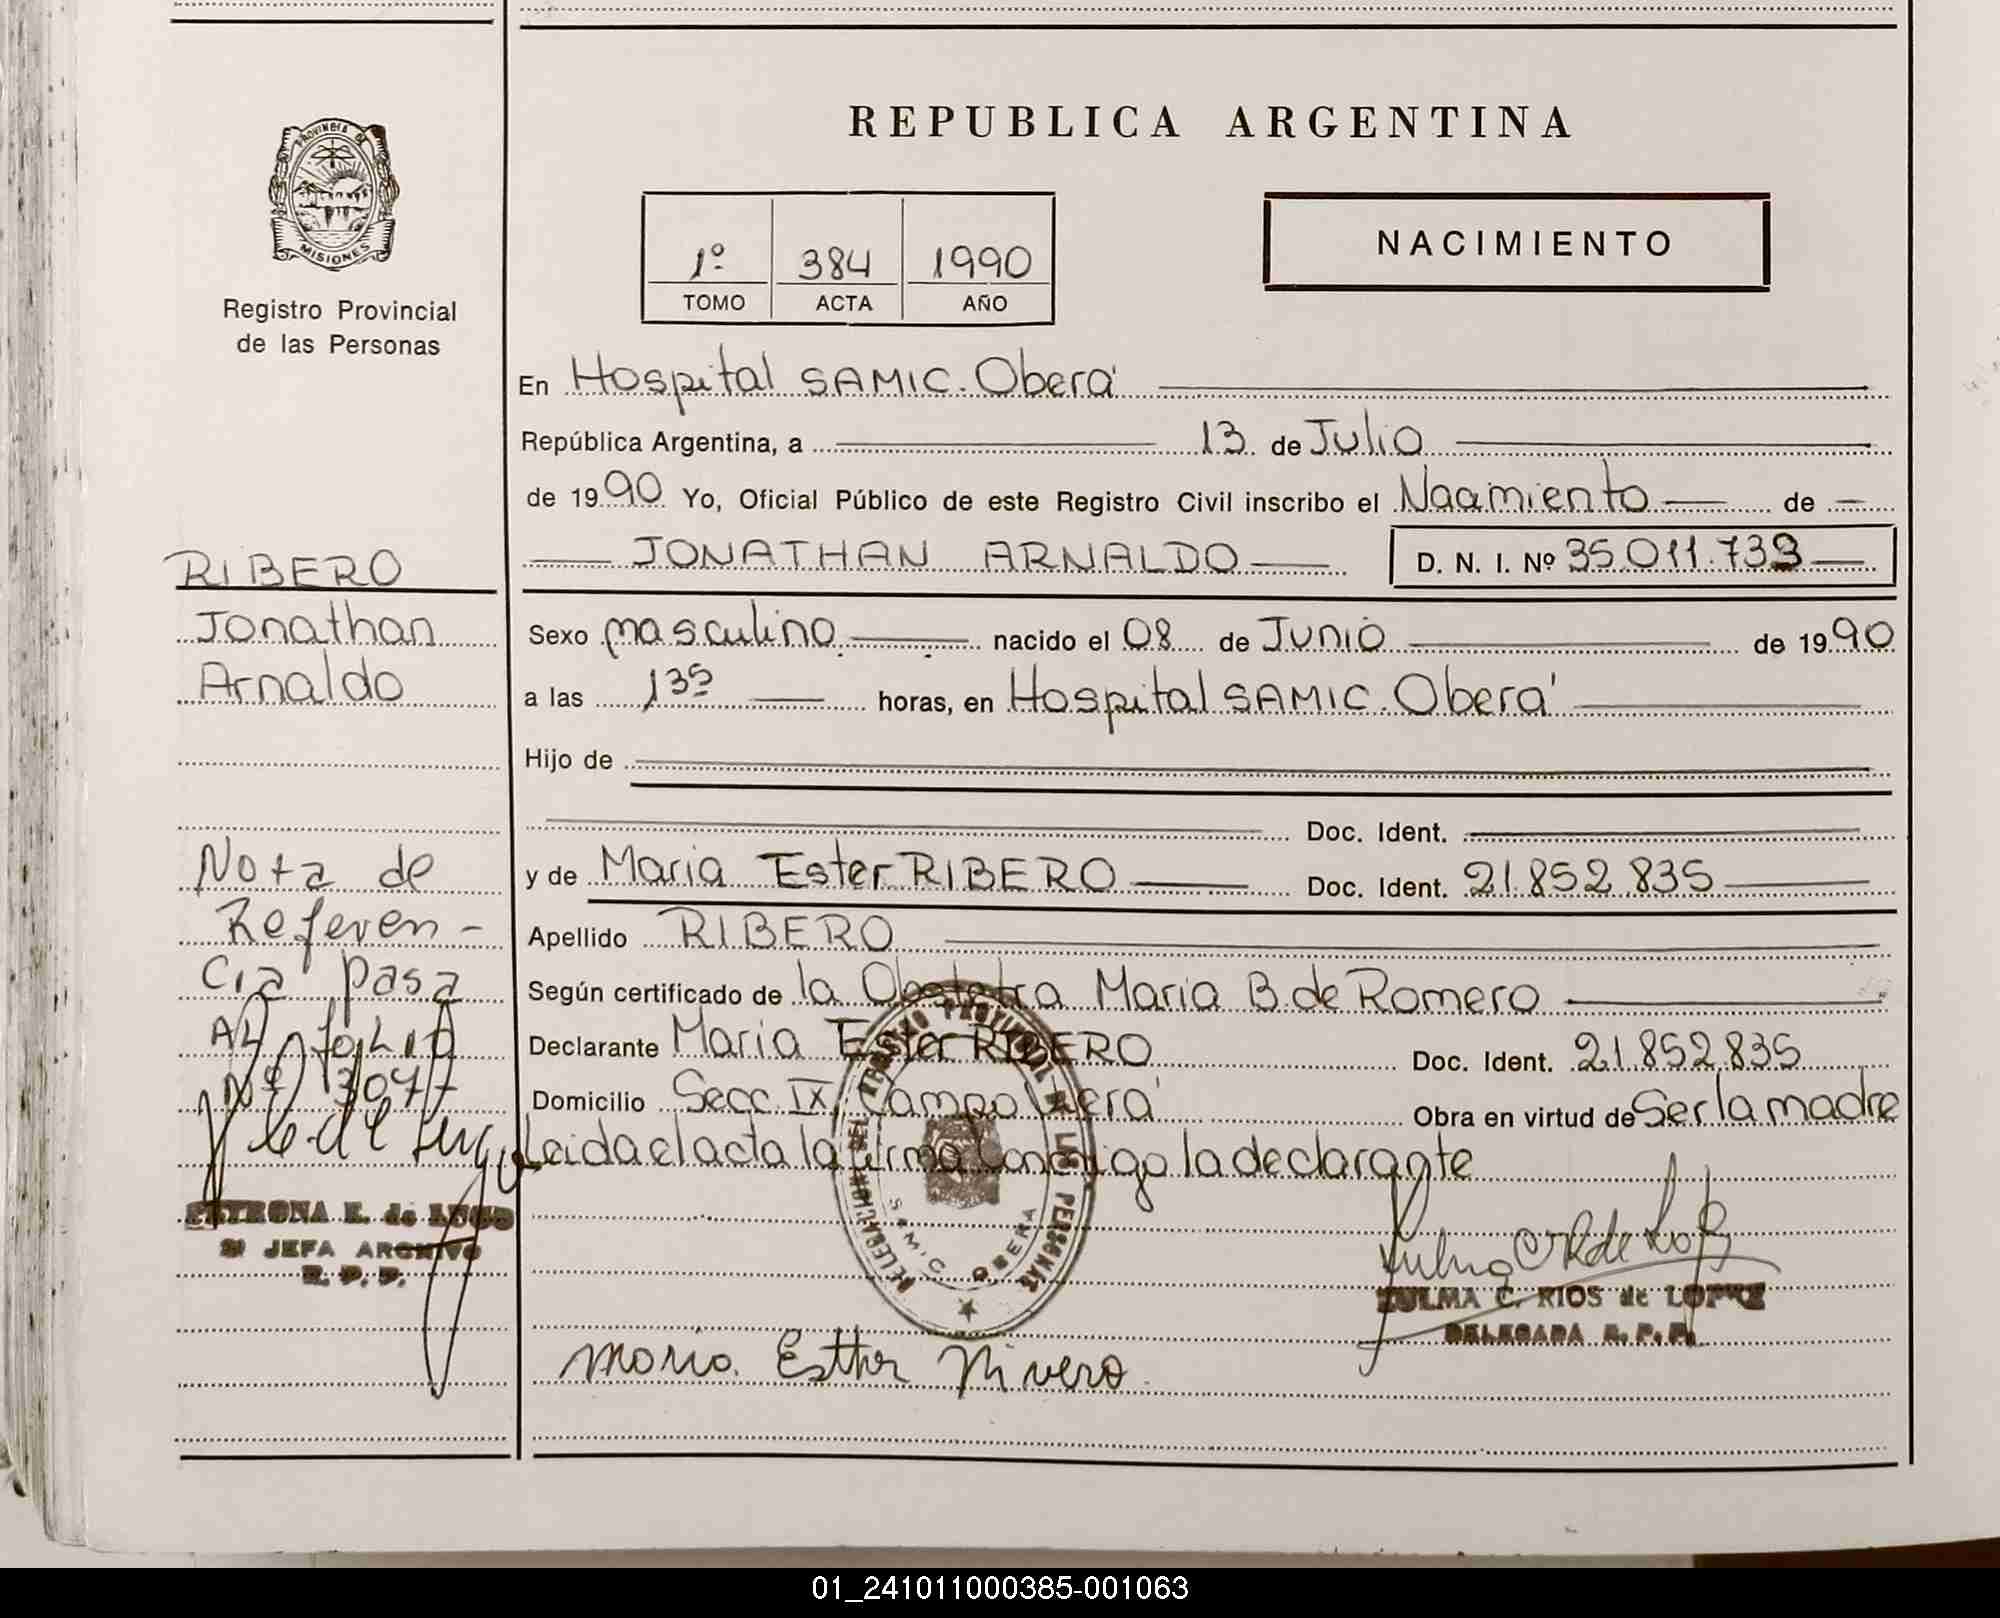 REPUBLICA ARGENTINA
PROVINCIA DE
MISIONES
Registro Provincial
de las Personas
1º 384 1990
TOMO ACTA AÑO
NACIMIENTO
En Hospital SAMIC. Oberá
República Argentina, a 13 de Julio
de 1990 Yo, Oficial Público de este Registro Civil inscribo el Nacimiento de
JONATHAN ARNALDO D. N. I. Nº 35.011.733
RIBERO
Jonathan
Arnaldo
Sexo masculino nacido el 08 de Junio de 1990
a las horas, en Hospital SAMIC. Oberá
Hijo de
Doc. Ident.
y de Maria Ester RIBERO Doc. Ident. 21.852.835
Apellido RIBERO
Según certificado de la Obstetra Maria B. de Romero
Declarante Maria Ester RIBERO Doc. Ident. 21.852.835
Domicilio Secc. IX, Campo Viera Obra en virtud de Ser la madre
Leida el acta la firma conmigo la declarante
Nota de
Referen-
cia pasa
AL folio
Nº 1307
PETRONA E. de LUGO
JEFA ARCHIVO
R. P. P.
REGISTRO PROVINCIAL DE LAS PERSONAS
DELEGACION
SAMIC OBERA
ZULMA C. RIOS de LOPEZ
DELEGADA R. P. P.
Maria Esther Rivero
01_241011000385-001063